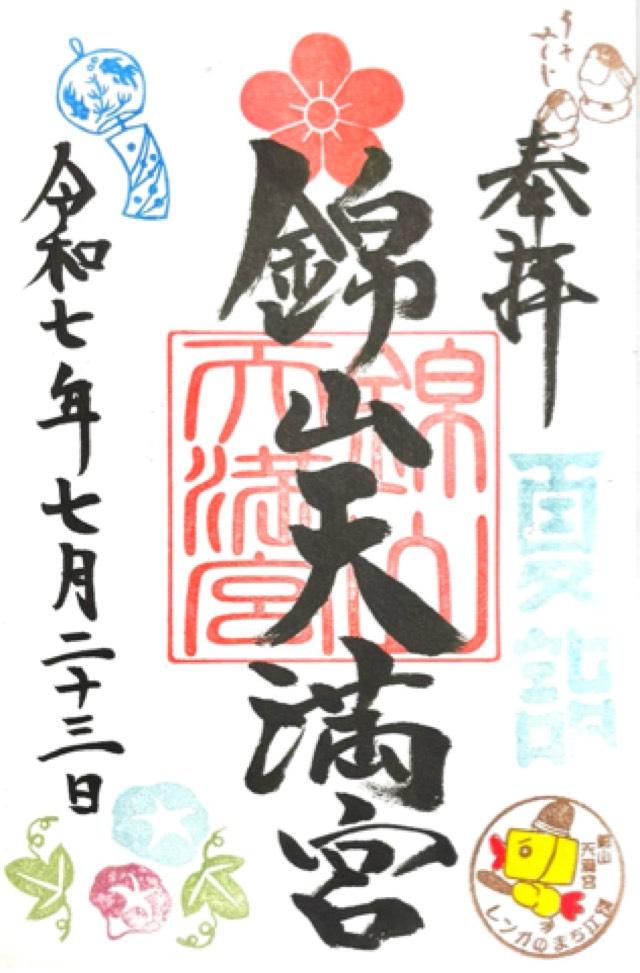 奉拝
夏詣
錦山天満宮
錦山
天満宮
令和七年七月二十三日
錦山
天満宮
レンガのまち江別